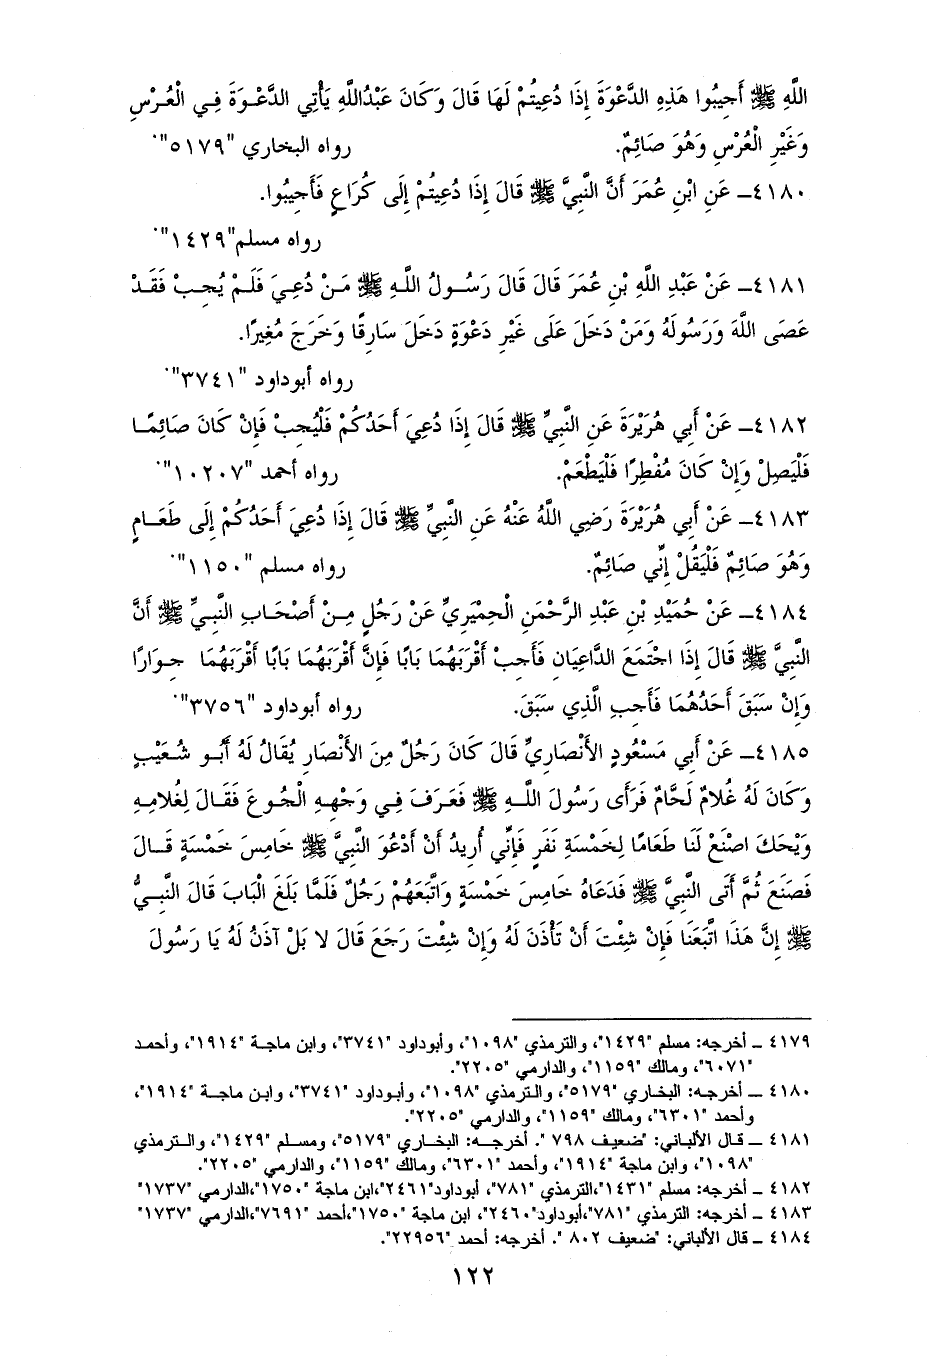 اللَّهِ ﷺ أَجِيبُوا هَذِهِ الدَّعْوَةَ إِذَا دُعِيتُمْ لَهَا قَالَ وَكَانَ عَبْدُاللَّهِ يَأْتِي الدَّعْوَةَ فِي الْعُرْسِ
وَغَيْرِ الْعُرْسِ وَهُوَ صَائِمٌ. رواه البخاري "٥١٧٩".
٤١٨٠ــ عَنِ ابْنِ عُمَرَ أَنَّ النَّبِيَّ ﷺ قَالَ إِذَا دُعِيتُمْ إِلَى كُرَاعٍ فَأَجِيبُوا.
رواه مسلم"١٤٢٩".
٤١٨١ــ عَنْ عَبْدِ اللَّهِ بْنِ عُمَرَ قَالَ قَالَ رَسُولُ اللَّهِ ﷺ مَنْ دُعِيَ فَلَمْ يُجِبْ فَقَدْ
عَصَى اللَّهَ وَرَسُولَهُ وَمَنْ دَخَلَ عَلَى غَيْرِ دَعْوَةٍ دَخَلَ سَارِقًا وَخَرَجَ مُغِيرًا.
رواه أبوداود "٣٧٤١".
٤١٨٢ــ عَنْ أَبِي هُرَيْرَةَ عَنِ النَّبِيِّ ﷺ قَالَ إِذَا دُعِيَ أَحَدُكُمْ فَلْيُجِبْ فَإِنْ كَانَ صَائِمًا
فَلْيَصِلْ وَإِنْ كَانَ مُفْطِرًا فَلْيَطْعَمْ. رواه أحمد "١٠٢٠٧".
٤١٨٣ــ عَنْ أَبِي هُرَيْرَةَ رَضِي اللَّهُ عَنْهُ عَنِ النَّبِيِّ ﷺ قَالَ إِذَا دُعِيَ أَحَدُكُمْ إِلَى طَعَامٍ
وَهُوَ صَائِمٌ فَلْيَقُلْ إِنِّي صَائِمٌ. رواه مسلم "١١٥٠".
٤١٨٤ــ عَنْ حُمَيْدِ بْنِ عَبْدِ الرَّحْمَنِ الْحِمْيَرِيِّ عَنْ رَجُلٍ مِنْ أَصْحَابِ النَّبِيِّ ﷺ أَنَّ
النَّبِيَّ ﷺ قَالَ إِذَا اجْتَمَعَ الدَّاعِيَانِ فَأَجِبْ أَقْرَبَهُمَا بَابًا فَإِنَّ أَقْرَبَهُمَا بَابًا أَقْرَبَهُمَا جِوَارًا
وَإِنْ سَبَقَ أَحَدُهُمَا فَأَجِبِ الَّذِي سَبَقَ. رواه أبوداود "٣٧٥٦".
٤١٨٥ــ عَنْ أَبِي مَسْعُودٍ الأَنْصَارِيِّ قَالَ كَانَ رَجُلٌ مِنَ الأَنْصَارِ يُقَالُ لَهُ أَبُو شُعَيْبٍ
وَكَانَ لَهُ غُلامٌ لَحَّامٌ فَرَأَى رَسُولَ اللَّهِ ﷺ فَعَرَفَ فِي وَجْهِهِ الْجُوعَ فَقَالَ لِغُلامِهِ
وَيْحَكَ اصْنَعْ لَنَا طَعَامًا لِخَمْسَةِ نَفَرٍ فَإِنِّي أُرِيدُ أَنْ أَدْعُوَ النَّبِيَّ ﷺ خَامِسَ خَمْسَةٍ قَالَ
فَصَنَعَ ثُمَّ أَتَى النَّبِيَّ ﷺ فَدَعَاهُ خَامِسَ خَمْسَةٍ وَاتَّبَعَهُمْ رَجُلٌ فَلَمَّا بَلَغَ الْبَابَ قَالَ النَّبِيُّ
ﷺ إِنَّ هَذَا اتَّبَعَنَا فَإِنْ شِئْتَ أَنْ تَأْذَنَ لَهُ وَإِنْ شِئْتَ رَجَعَ قَالَ لا بَلْ آذَنُ لَهُ يَا رَسُولَ
٤١٧٩ ــ أخرجه: مسلم "١٤٢٩"، والترمذي "١٠٩٨"، وأبوداود "٣٧٤١"، وابن ماجة "١٩١٤"، وأحمد
"٦٠٧١"، ومالك "١١٥٩"، والدارمي "٢٢٠٥".
٤١٨٠ ــ أخرجه: البخاري "٥١٧٩"، والترمذي "١٠٩٨"، وأبوداود "٣٧٤١"، وابن ماجة "١٩١٤"،
وأحمد "٦٣٠١"، ومالك "١١٥٩"، والدارمي "٢٢٠٥".
٤١٨١ ــ قال الألباني: "ضعيف ٧٩٨ ". أخرجه: البخاري "٥١٧٩"، ومسلم "١٤٢٩"، والترمذي
"١٠٩٨"، وابن ماجة "١٩١٤"، وأحمد "٦٣٠١"، ومالك "١١٥٩"، والدارمي "٢٢٠٥".
٤١٨٢ ــ أخرجه: مسلم "١٤٣١"،الترمذي "٧٨١"، أبوداود"٢٤٦١"،ابن ماجة "١٧٥٠"،الدارمي "١٧٣٧"
٤١٨٣ ــ أخرجه: الترمذي "٧٨١"،أبوداود"٢٤٦٠"، ابن ماجة "١٧٥٠"،أحمد "٧٦٩١"،الدارمي "١٧٣٧"
٤١٨٤ ــ قال الألباني: "ضعيف ٨٠٢ ". أخرجه: أحمد "٢٢٩٥٦".
١٢٢